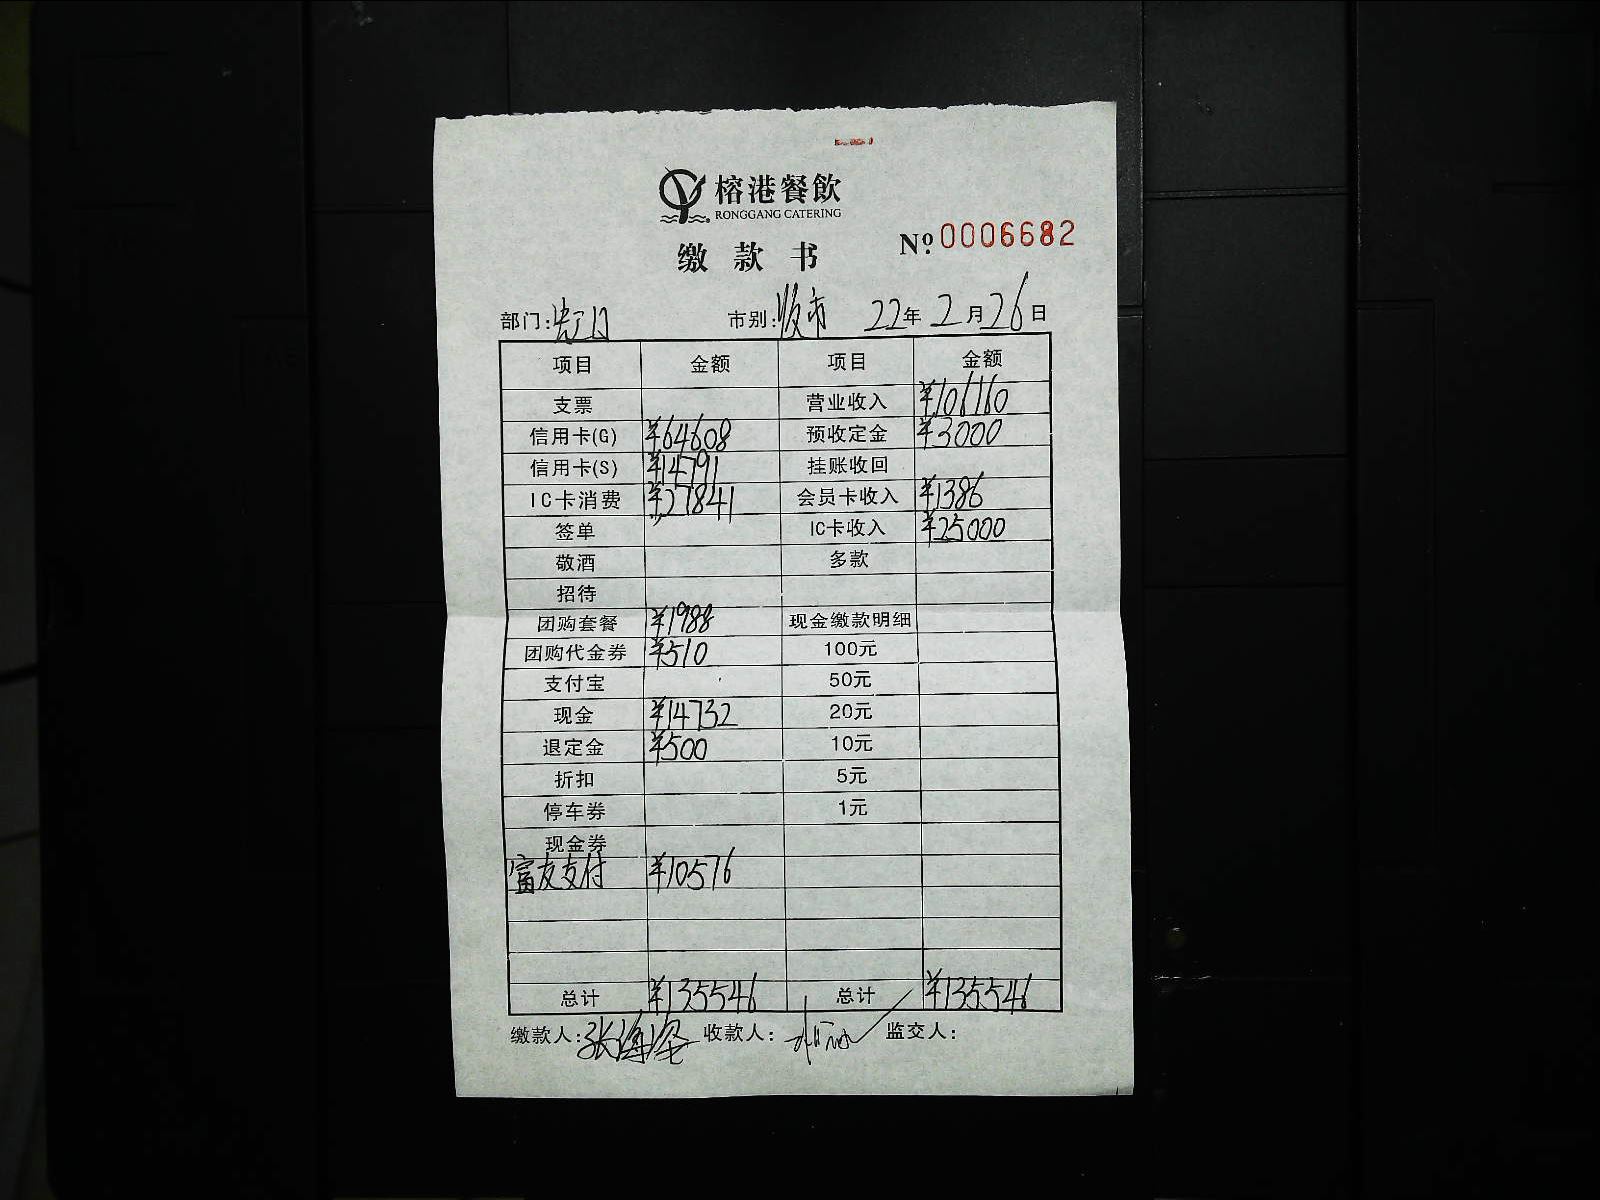 榕港餐飲
RONGGANG CATERING
缴款书 Nº 0006682
部门: 市别: 22年2月26日
项目 金额 项目 金额
支票 营业收入 ¥106160
信用卡(G) ¥64608 预收定金 ¥3000
信用卡(S) ¥14791 挂账收回
IC卡消费 ¥27841 会员卡收入 ¥1386
签单 IC卡收入 ¥25000
敬酒 多款
招待
团购套餐 ¥1988 现金缴款明细
团购代金券 ¥510 100元
支付宝 50元
现金 ¥14732 20元
退定金 ¥500 10元
折扣 5元
停车券 1元
现金券
富友支付 ¥10576
总计 ¥135546 总计 ¥135546
缴款人:张海 收款人: 监交人: